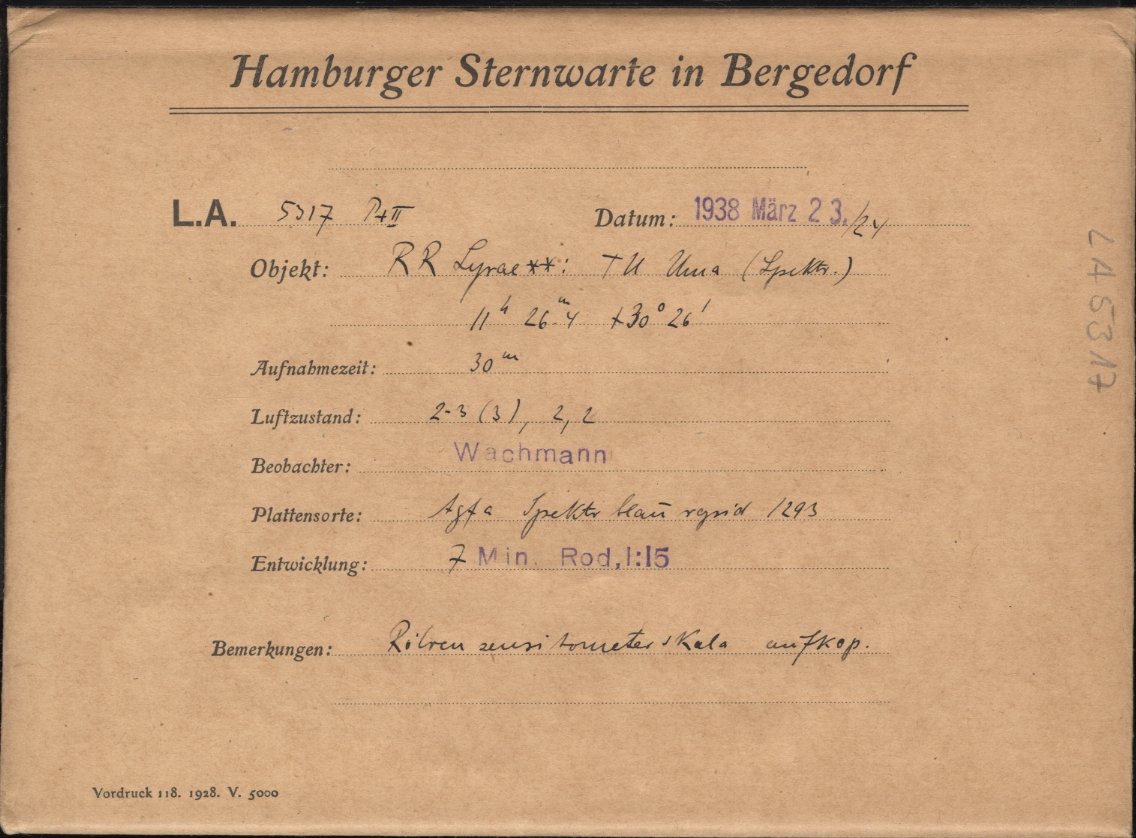 Hamburger Sternwarte in Bergedorf
L.A. 5317 P+II Datum: 1938 März 23./24
Objekt: RR Lyrae**: TU Uma (Spektr.)
11ʰ 26ᵐ.4 +30° 26'
Aufnahmezeit: 30ᵐ
Luftzustand: 2-3 (3), 2, 2
Beobachter: Wachmann
Plattensorte: Agfa Spektr blau rapid 1293
Entwicklung: 7 Min. Rod, 1:15
Bemerkungen: Röhrensensitometerskala aufkop.
Vordruck 118. 1928. V. 5000
LA5317